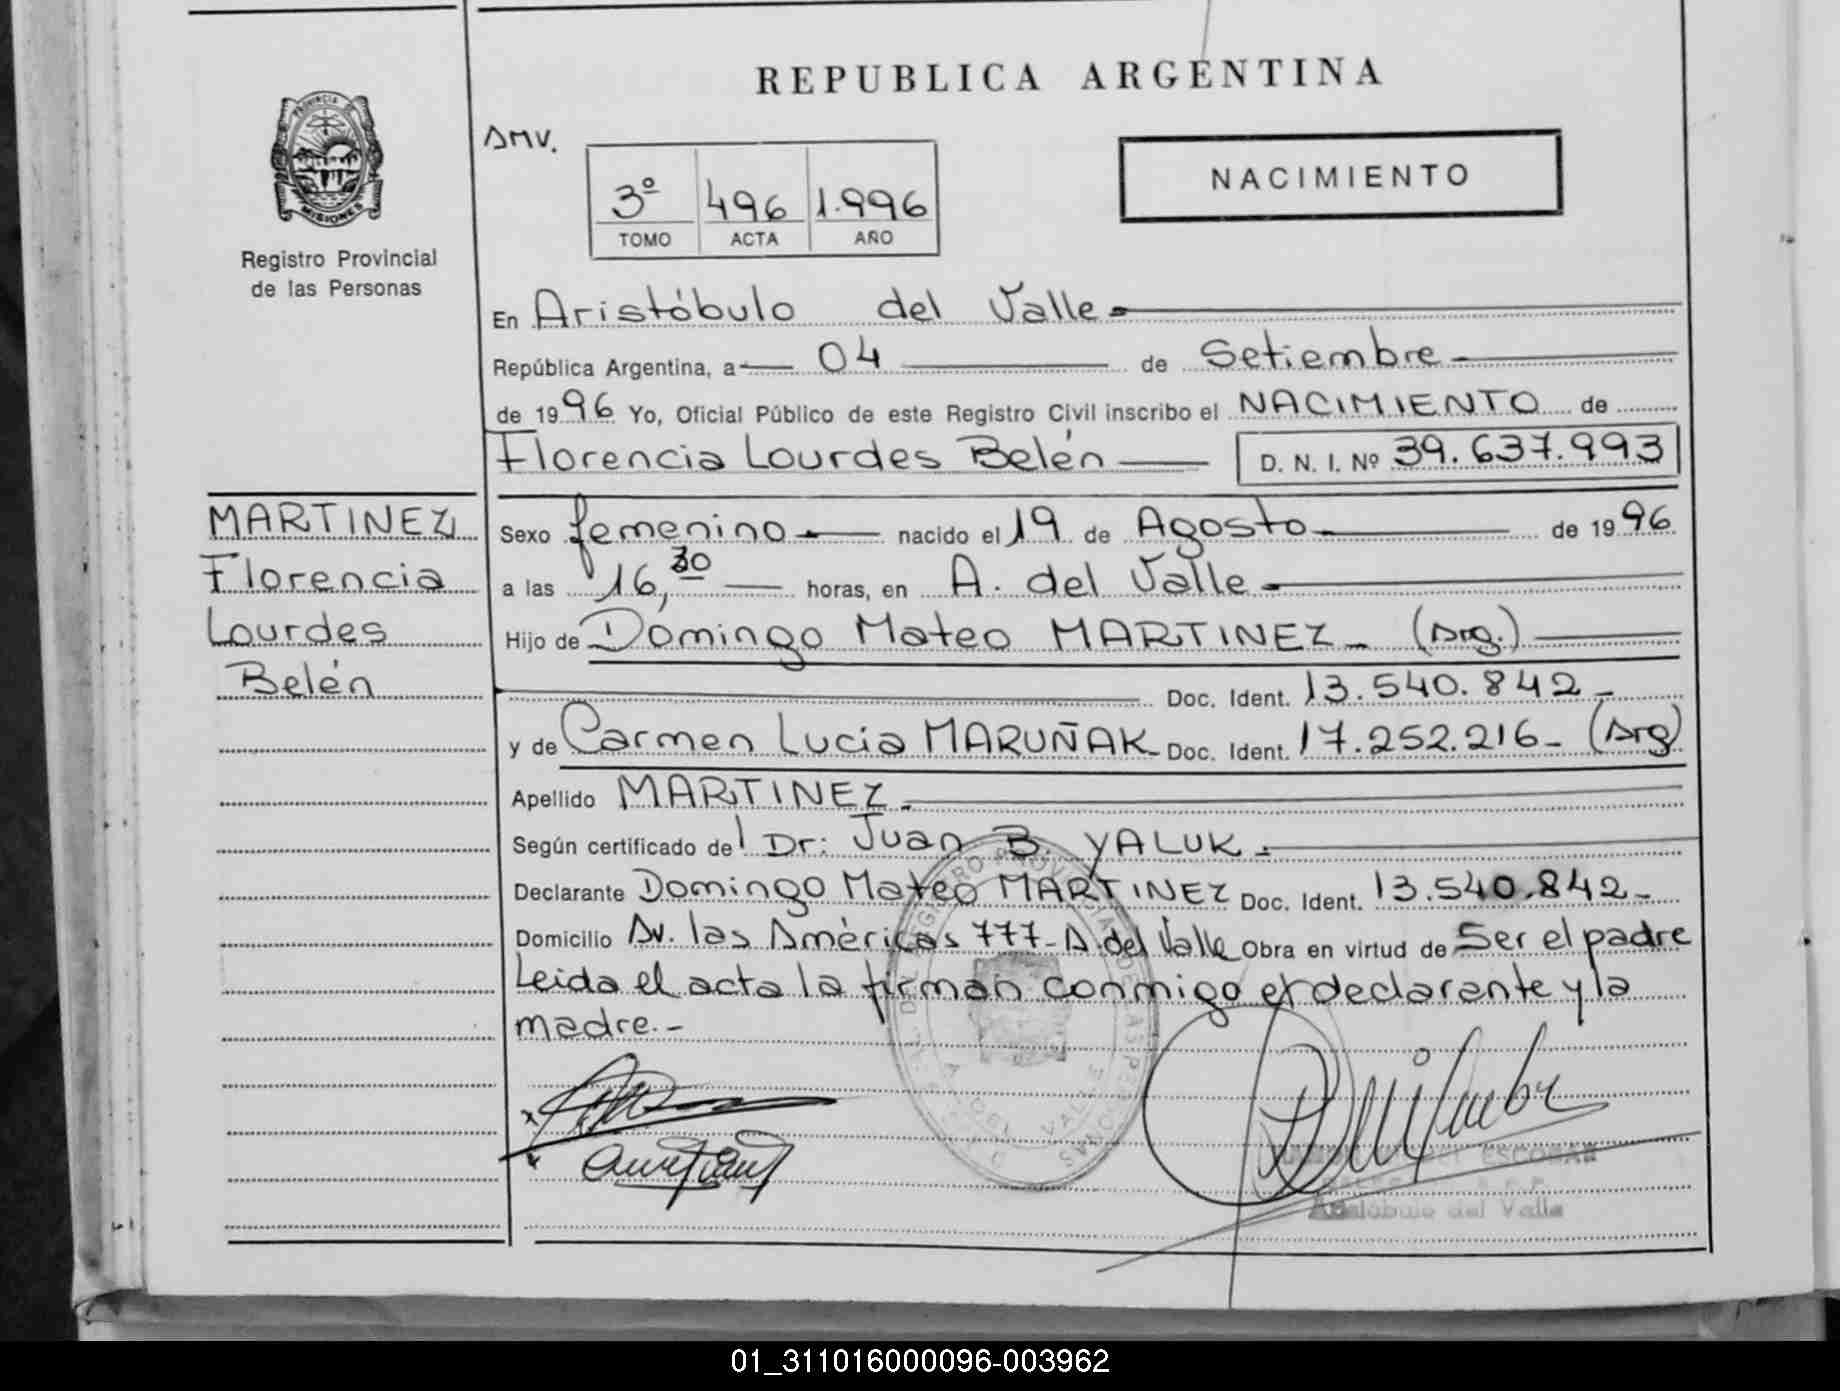 REPUBLICA ARGENTINA
PROVINCIA DE
MISIONES
Registro Provincial
de las Personas
AMV.
NACIMIENTO
3º 496 1.996
TOMO ACTA AÑO
En Aristóbulo del Valle
República Argentina, a 04 de Setiembre
de 1996 Yo, Oficial Público de este Registro Civil inscribo el NACIMIENTO de
Florencia Lourdes Belén D. N. I. Nº 39.637.993
MARTINEZ
Florencia
Lourdes
Belén
Sexo femenino nacido el 19 de Agosto de 1996
a las 16,30 horas, en A. del Valle
Hijo de Domingo Mateo MARTINEZ (Arg.)
Doc. Ident. 13.540.842
y de Carmen Lucia MARUÑAK Doc. Ident. 17.252.216 (Arg)
Apellido MARTINEZ
Según certificado del Dr: Juan B. YALUK
Declarante Domingo Mateo MARTINEZ Doc. Ident. 13.540.842
Domicilio Av. las Américas 777- A. del Valle Obra en virtud de Ser el padre
Leida el acta la firman conmigo el declarante y la
madre.-
REGISTRO PROVINCIAL DE LAS PERSONAS
A. DEL VALLE
ESCOBAR
Aristóbulo del Valle
01_311016000096-003962